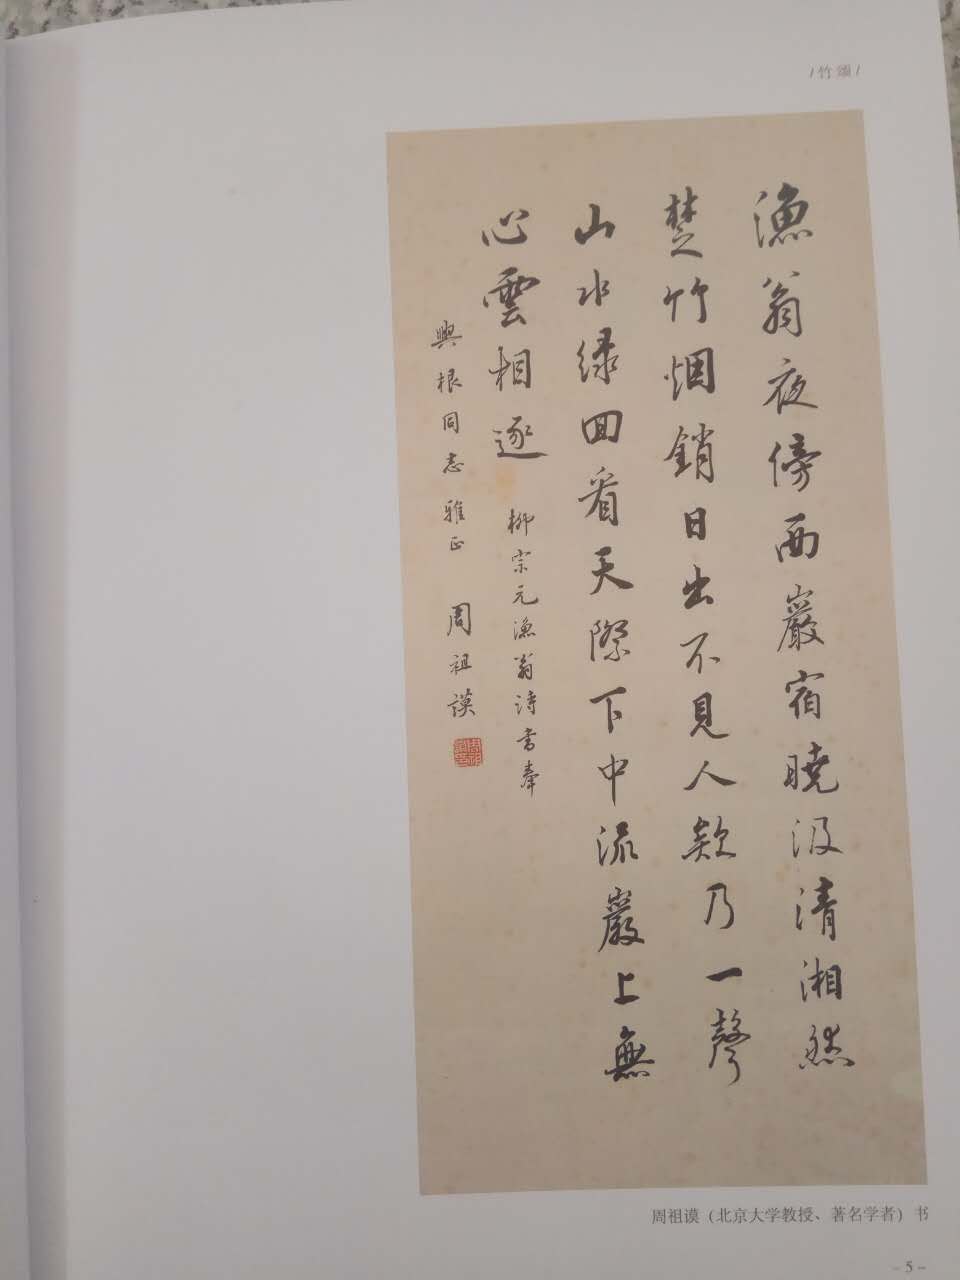 / 竹颂 /
漁翁夜傍西巖宿曉汲清湘然
楚竹烟銷日出不見人欸乃一聲
山水绿回看天際下中流巖上無
心雲相逐
柳宗元漁翁诗书奉
興根同志雅正 周祖谟
周祖谟（北京大学教授、著名学者）书
- 5 -